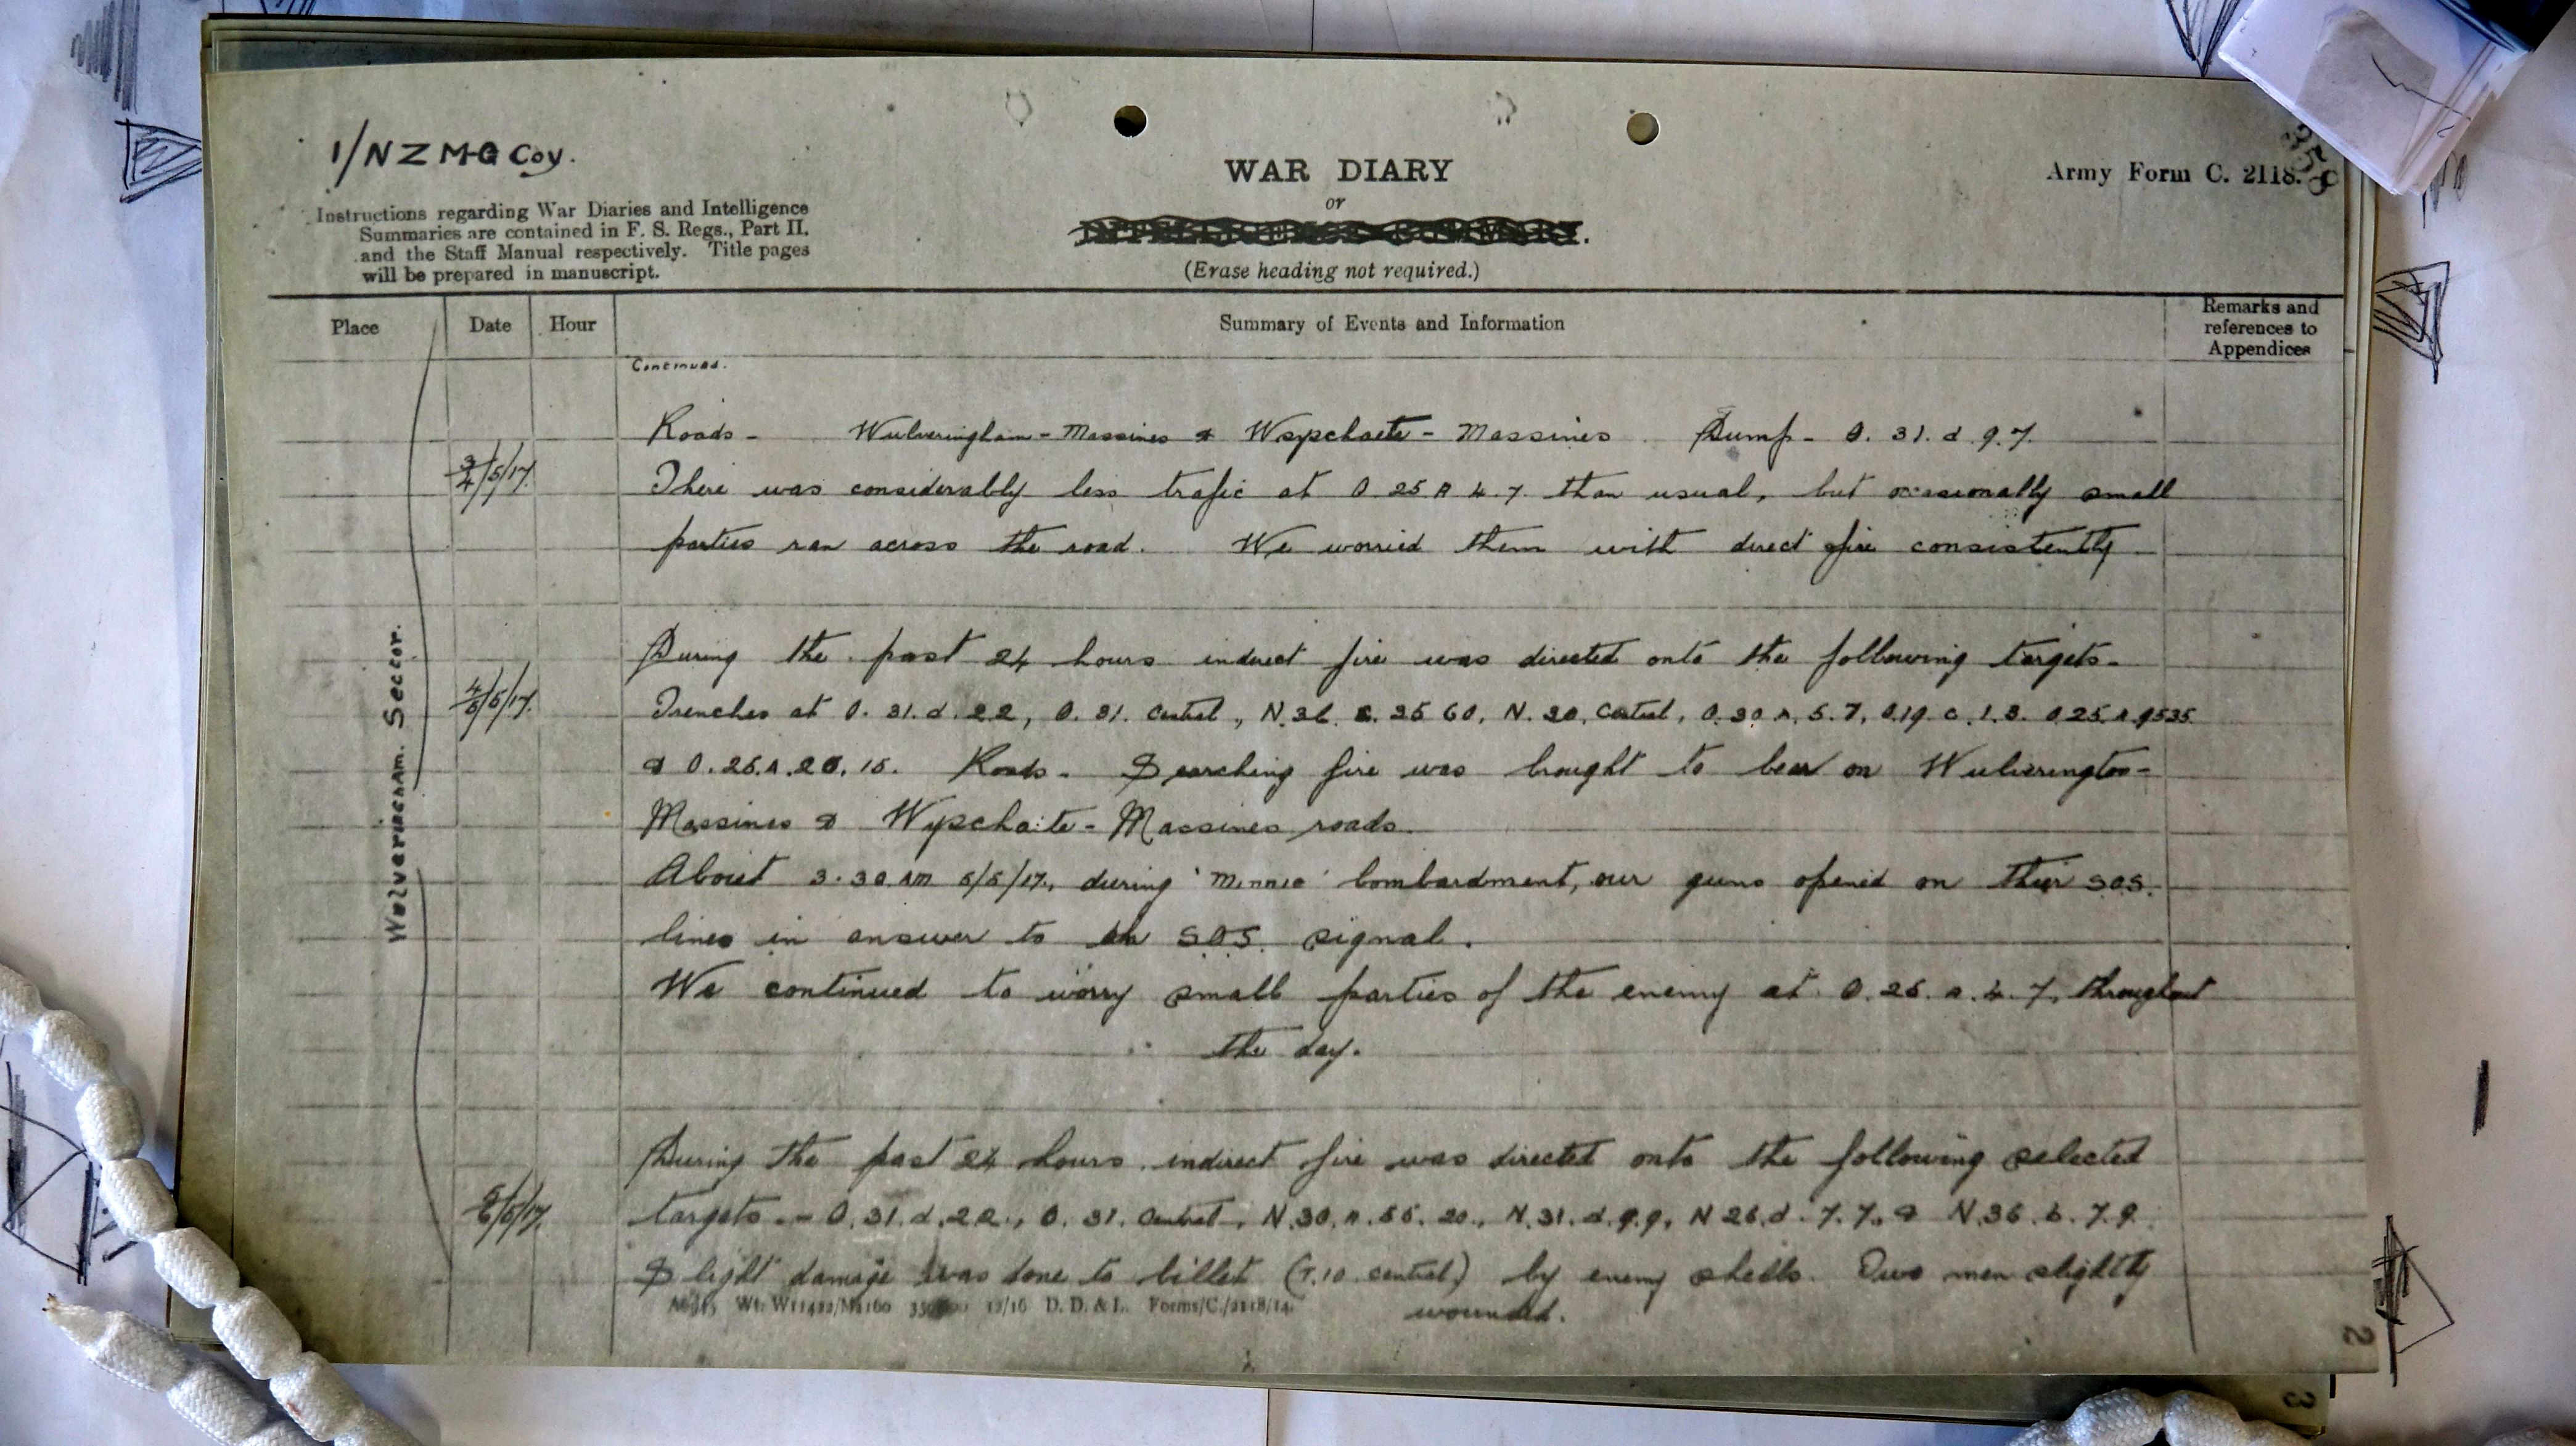 358
1/NZ M-G Coy.
Instructions regarding War Diaries and Intelligence
Summaries are contained in F. S. Regs., Part II.
and the Staff Manual respectively. Title pages
will be prepared in manuscript.
WAR DIARY
or
INTELLIGENCE SUMMARY.
(Erase heading not required.)
Army Form C. 2118.
Place Date Hour Summary of Events and Information Remarks and
references to
Appendices
Continued.
Wulveringham. Sector.
Roads - Wulveringham - Massines & Wypchaete - Massines Dump - O. 31. d. 9. 7.
3/4/5/17. There was considerably less trafic at O 25 A 4. 7. than usual, but occasionally small
parties ran across the road. We worried them with direct fire consistently
During the past 24 hours indirect fire was directed onto the following targets -
4/5/5/17. Trenches at O. 31. d. 22, O. 31. Central, N. 36. 35 60, N. 30. Central, O. 30 A. 5. 7, O.19. c. 1. 3. O 25. A 9535
& O. 25. A. 20. 15. Roads - Searching fire was brought to bear on Wulverington -
Massines & Wypchaite - Massines roads.
About 3.30 AM 5/5/17, during 'Minnie' bombardment, our guns opened on their S.O.S.
lines in answer to an S.O.S. signal.
We continued to worry small parties of the enemy at O. 25. A. 4. 7, throughout
the day.
During the past 24 hours indirect fire was directed onto the following selected
5/6/5/17. targets - O. 31. d. 22., O. 31. Central, N. 30. A. 55. 20., N. 31. d. 9.9, N 26. d. 7. 7. & N. 36. b. 7. 9.
Slight damage was done to billet (T.10 central) by enemy shells. Two men slightly
wounded.
Wt. W11422/M1160 350000 12/16 D. D. & L. Forms/C./2118/14.
2
3